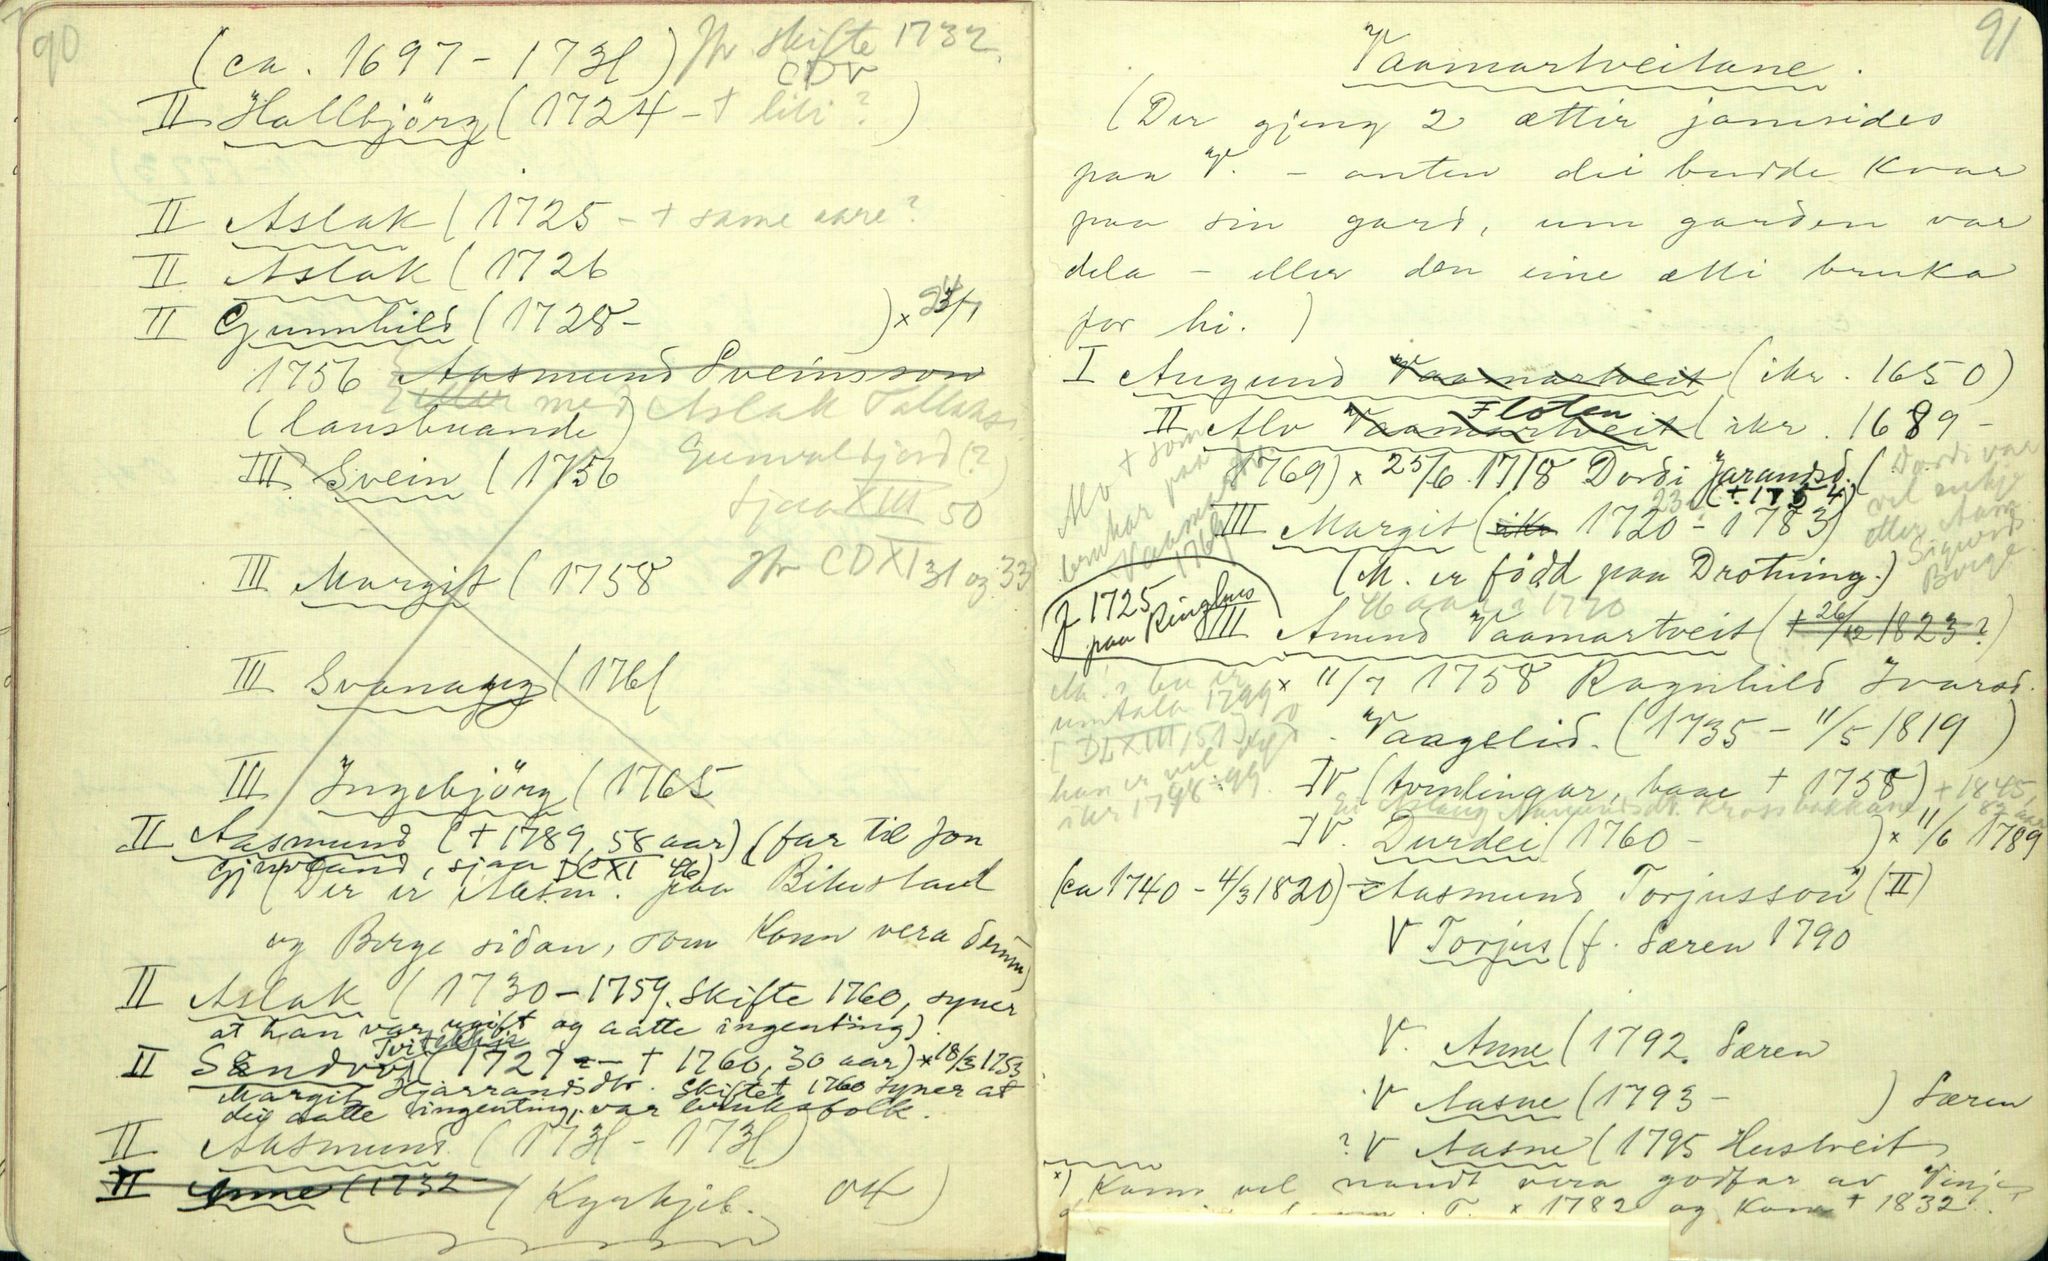 90
(ca. 1697 - 1731) Jfr skifte 1732
CDV
II Hallbjörg (1724 - + liti ? )
II Aslak (1725 - + same aare ?
II Aslak (1726
II Gunnhild (1728 - ) x /7
1756 Aasmund Sveinsson
(lausbuande) med Aslak
III Svein (1756
sjaa XIII 50
III Margit (1758 Jfr CDXI 31 og 33
III Svanaug (1761
III Ingebjörg (1765
II Aasmund (+ 1789, 58 aar) (far til Jon
sjaa DCXI 46)
(Der er Aasm. paa Bitustaul
og Berge sidan, som kann vera denne)
II Aslak (1730 - 1759. Skifte 1760, syner
at han var ugift og aatte ingenting).
II Sendvei (1727 - + 1760, 30 aar) x 18/3 1753
Margit Hjarrandsdtr. Skiftet 1760 syner at
dei aatte ingenting, var bruksfolk.
II Aasmund (1731 - 1731)
II Anne (1732 - (Kyrkjeb. )
91
Vaamartveitane.
(Der gjeng 2 ættir jamsides
paa V. - anten dei budde kvar
paa sin gard, um garden var
dela - eller den eine ætti bruka
for hi. )
I Augund Vaamartveit (ikr. 1650)
Floten
II Alv Vaamartveit (ikr. 1689 -
1769) x 25/6 1718 Dordi Jarandsd. (
(+ 1754)
Alv + som
brukar paa
1769
Dordi var
vel enkje
etter Aam.
Sigurds.
Berge.
III Margit (ikr 1720 - 1783)
(M. er född paa Drotning.)
f 1725
paa Ringhus
46 aar i 1770
III Amund Vaamartveit (+ 26/12 1823 ?)
x 11/7 1758 Ragnhild Ivarsd.
Vaagelid. (1735 - 11/5 1819 )
umtala 1799
han er vel
ikr 1798-99.
IV (tvinlingar, baae + 1758) + 1845,
IV. Durdei (1760 - ) x 11/6 1789
(ca 1740 - 4/3 1820) Aasmund Torjusson (II)
V Torjus (f. Særen 1790
V. Anne (1792. Særen
V Aasne (1793 - ) Særen
? V Aasne (1795 Hustveit
x) Kann vel naudt vera godfar av Vinje,
T. x 1782 og Kona + 1832.